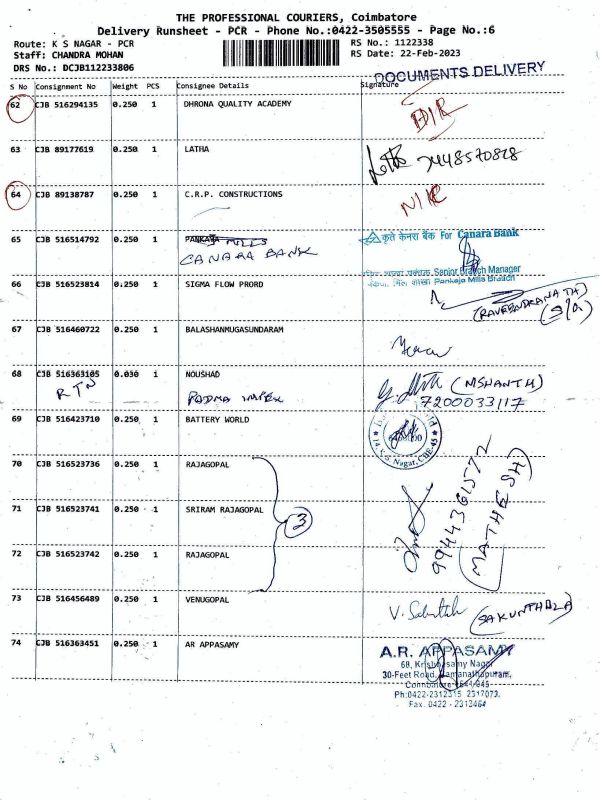 THE PROFESSIONAL COURIERS, Coimbatore
Delivery Runsheet - PCR - Phone No.:0422-3505555 - Page No.:6
Route: K S NAGAR - PCR RS No.: 1122338
Staff: CHANDRA MOHAN RS Date: 22-Feb-2023
DRS No.: DCJB112233806
DOCUMENTS DELIVERY
S No Consignment No Weight PCS Consignee Details Signature
62 CJB 516294135 0.250 1 DHRONA QUALITY ACADEMY
63 CJB 89177619 0.250 1 LATHA
Latha 7448570828
64 CJB 89138787 0.250 1 C.R.P. CONSTRUCTIONS
65 CJB 516514792 0.250 1 PANKAJA MILLS
CANARA BANK
कृते केनरा बैंक For Canara Bank
Senior Branch Manager
Pankaja Mills Branch
66 CJB 516523814 0.250 1 SIGMA FLOW PRORD
(RAVEENDRANATH)
67 CJB 516460722 0.250 1 BALASHANMUGASUNDARAM
68 CJB 516363105 0.030 1 NOUSHAD
RTN PADMA IMPEX (MSHANTH)
7200033117
69 CJB 516423710 0.250 1 BATTERY WORLD
14, K.S. Nagar, CBE-45
70 CJB 516523736 0.250 1 RAJAGOPAL
71 CJB 516523741 0.250 1 SRIRAM RAJAGOPAL
3
9944361572
(MATHESH)
72 CJB 516523742 0.250 1 RAJAGOPAL
73 CJB 516456489 0.250 1 VENUGOPAL
(SAKUNTHALA)
74 CJB 516363451 0.250 1 AR APPASAMY
A.R. APPASAMY
68, Krishnasamy Nagar
30-Feet Road, Ramanathapuram,
Coimbatore - 641 045
Ph:0422-2312315 2317073,
Fax: 0422 - 2313464